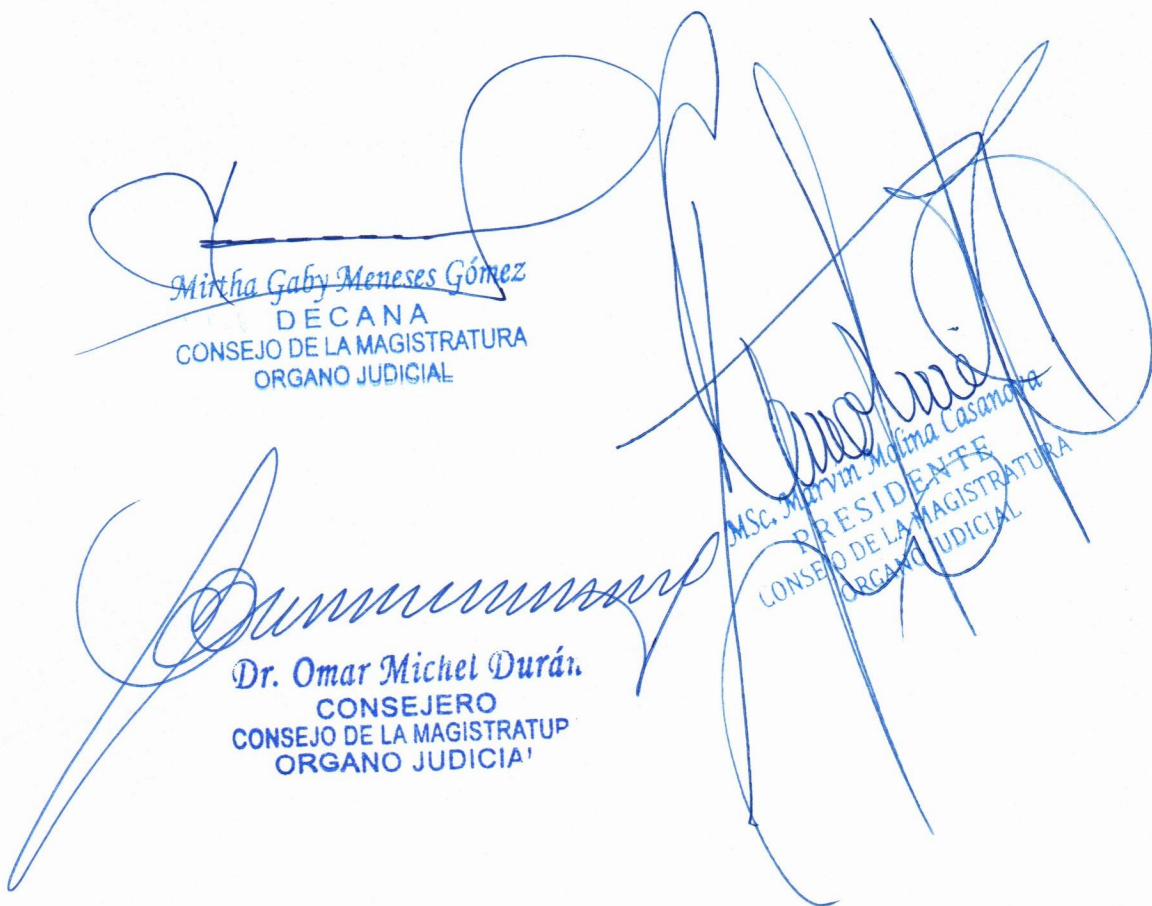 Mirtha Gaby Meneses Gómez
DECANA
CONSEJO DE LA MAGISTRATURA
ORGANO JUDICIAL
MSc. Marvin Molina Casanova
PRESIDENTE
CONSEJO DE LA MAGISTRATURA
ORGANO JUDICIAL
Dr. Omar Michel Durán
CONSEJERO
CONSEJO DE LA MAGISTRATUR
ORGANO JUDICIAL